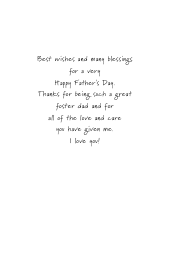 Best wishes and many blessings
for a very
Happy Father's Day.
Thanks for being such a great
foster dad and for
all of the love and care
you have given me.
I love you!